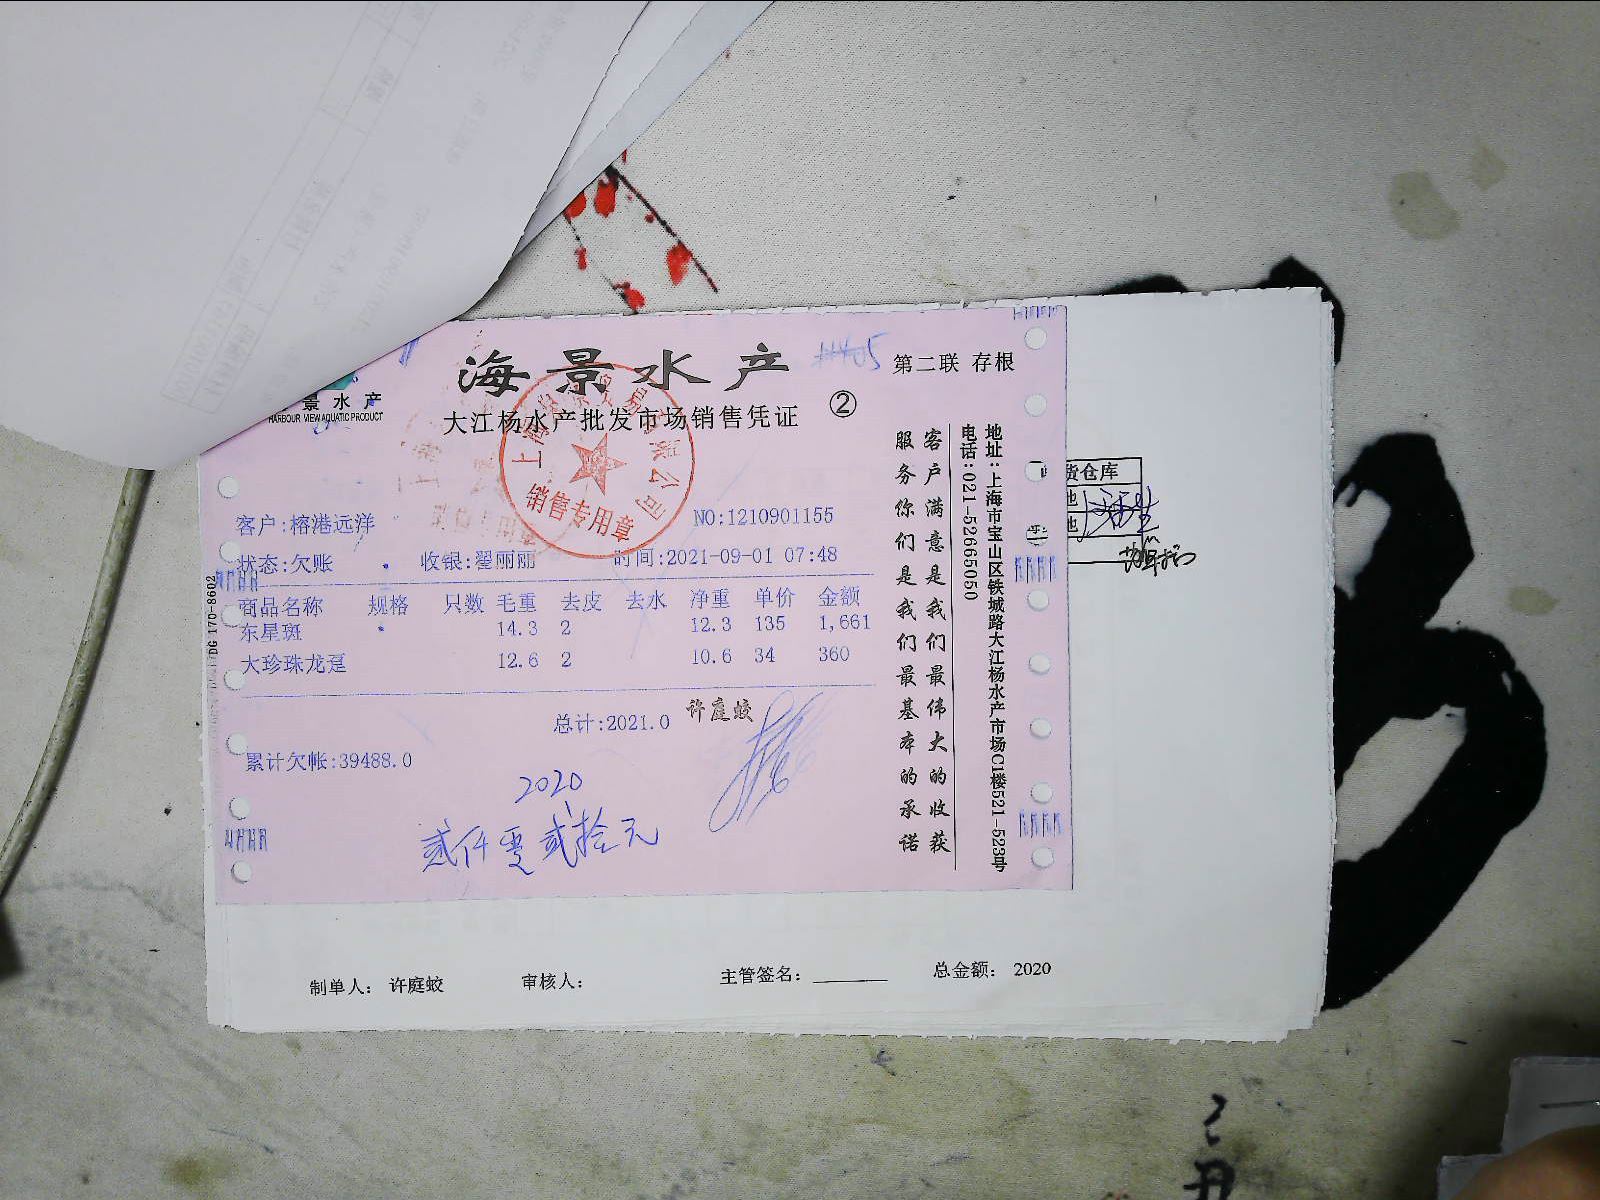 海景水产
大江杨水产批发市场销售凭证
②
第二联 存根
景水产
HARBOUR VIEW AQUATIC PRODUCT
销售专用章
客户:榕港远洋
NO:1210901155
状态:欠账 收银:翟丽丽 时间:2021-09-01 07:48
商品名称 规格 只数 毛重 去皮 去水 净重 单价 金额
东星斑 14.3 2 12.3 135 1,661
大珍珠龙趸 12.6 2 10.6 34 360
总计:2021.0 许庭蛟
累计欠帐:39488.0
2020
贰仟零贰拾元
DG 170-8602
客户满意是我们最伟大的收获
服务你们是我们最基本的承诺
地址:上海市宝山区铁城路大江杨水产市场C1楼521-523号
电话:021-52665050
货仓库
制单人: 许庭蛟 审核人: 主管签名: 总金额: 2020